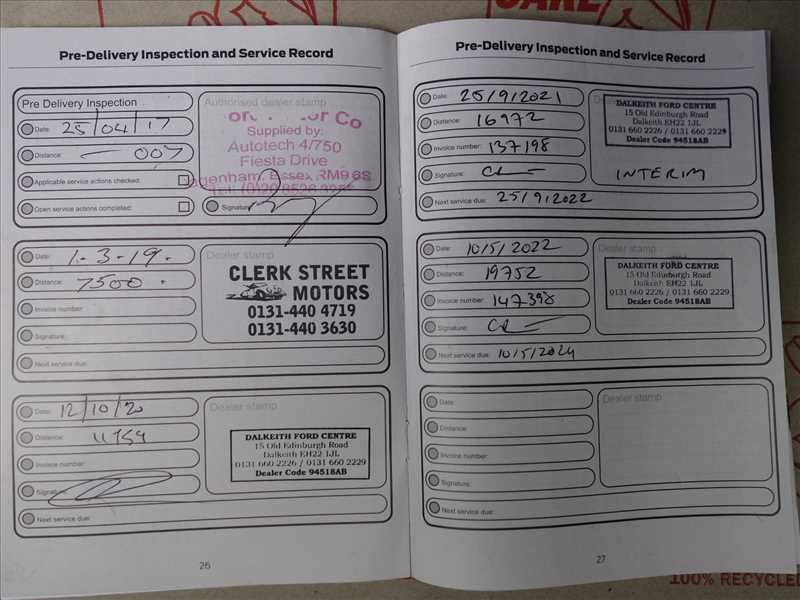 CARE
Pre-Delivery Inspection and Service Record
Pre Delivery Inspection
Date: 25/04/17
Distance: 007
Applicable service actions checked:
Open service actions completed:
Authorised dealer stamp
Supplied by:
Autotech 4/750
Fiesta Drive
Essex RM9 6S
Signature
Date: 1-3-19.
Distance: 7500.
Invoice number:
Signature:
Next service due:
Dealer stamp
CLERK STREET
MOTORS
0131-440 4719
0131-440 3630
Date: 12/10/20
Distance:
Invoice number:
Signature:
Next service due:
Dealer stamp
DALKEITH FORD CENTRE
15 Old Edinburgh Road
Dalkeith EH22 1JL
0131 660 2226 / 0131 660 2229
Dealer Code 94518AB
26
Pre-Delivery Inspection and Service Record
Date: 25/9/2021
Distance: 16972
Invoice number: 137198
Signature:
Next service due: 25/9/2022
DALKEITH FORD CENTRE
15 Old Edinburgh Road
Dalkeith EH22 1JL
0131 660 2226 / 0131 660 2229
Dealer Code 94518AB
INTERIM
Date: 10/5/2022
Distance: 19752
Invoice number: 147398
Signature:
Next service due: 10/5/2024
Dealer stamp
DALKEITH FORD CENTRE
15 Old Edinburgh Road
Dalkeith EH22 1JL
0131 660 2226 / 0131 660 2229
Dealer Code 94518AB
Date:
Distance:
Invoice number:
Signature:
Next service due:
Dealer stamp
27
100% RECYCLED